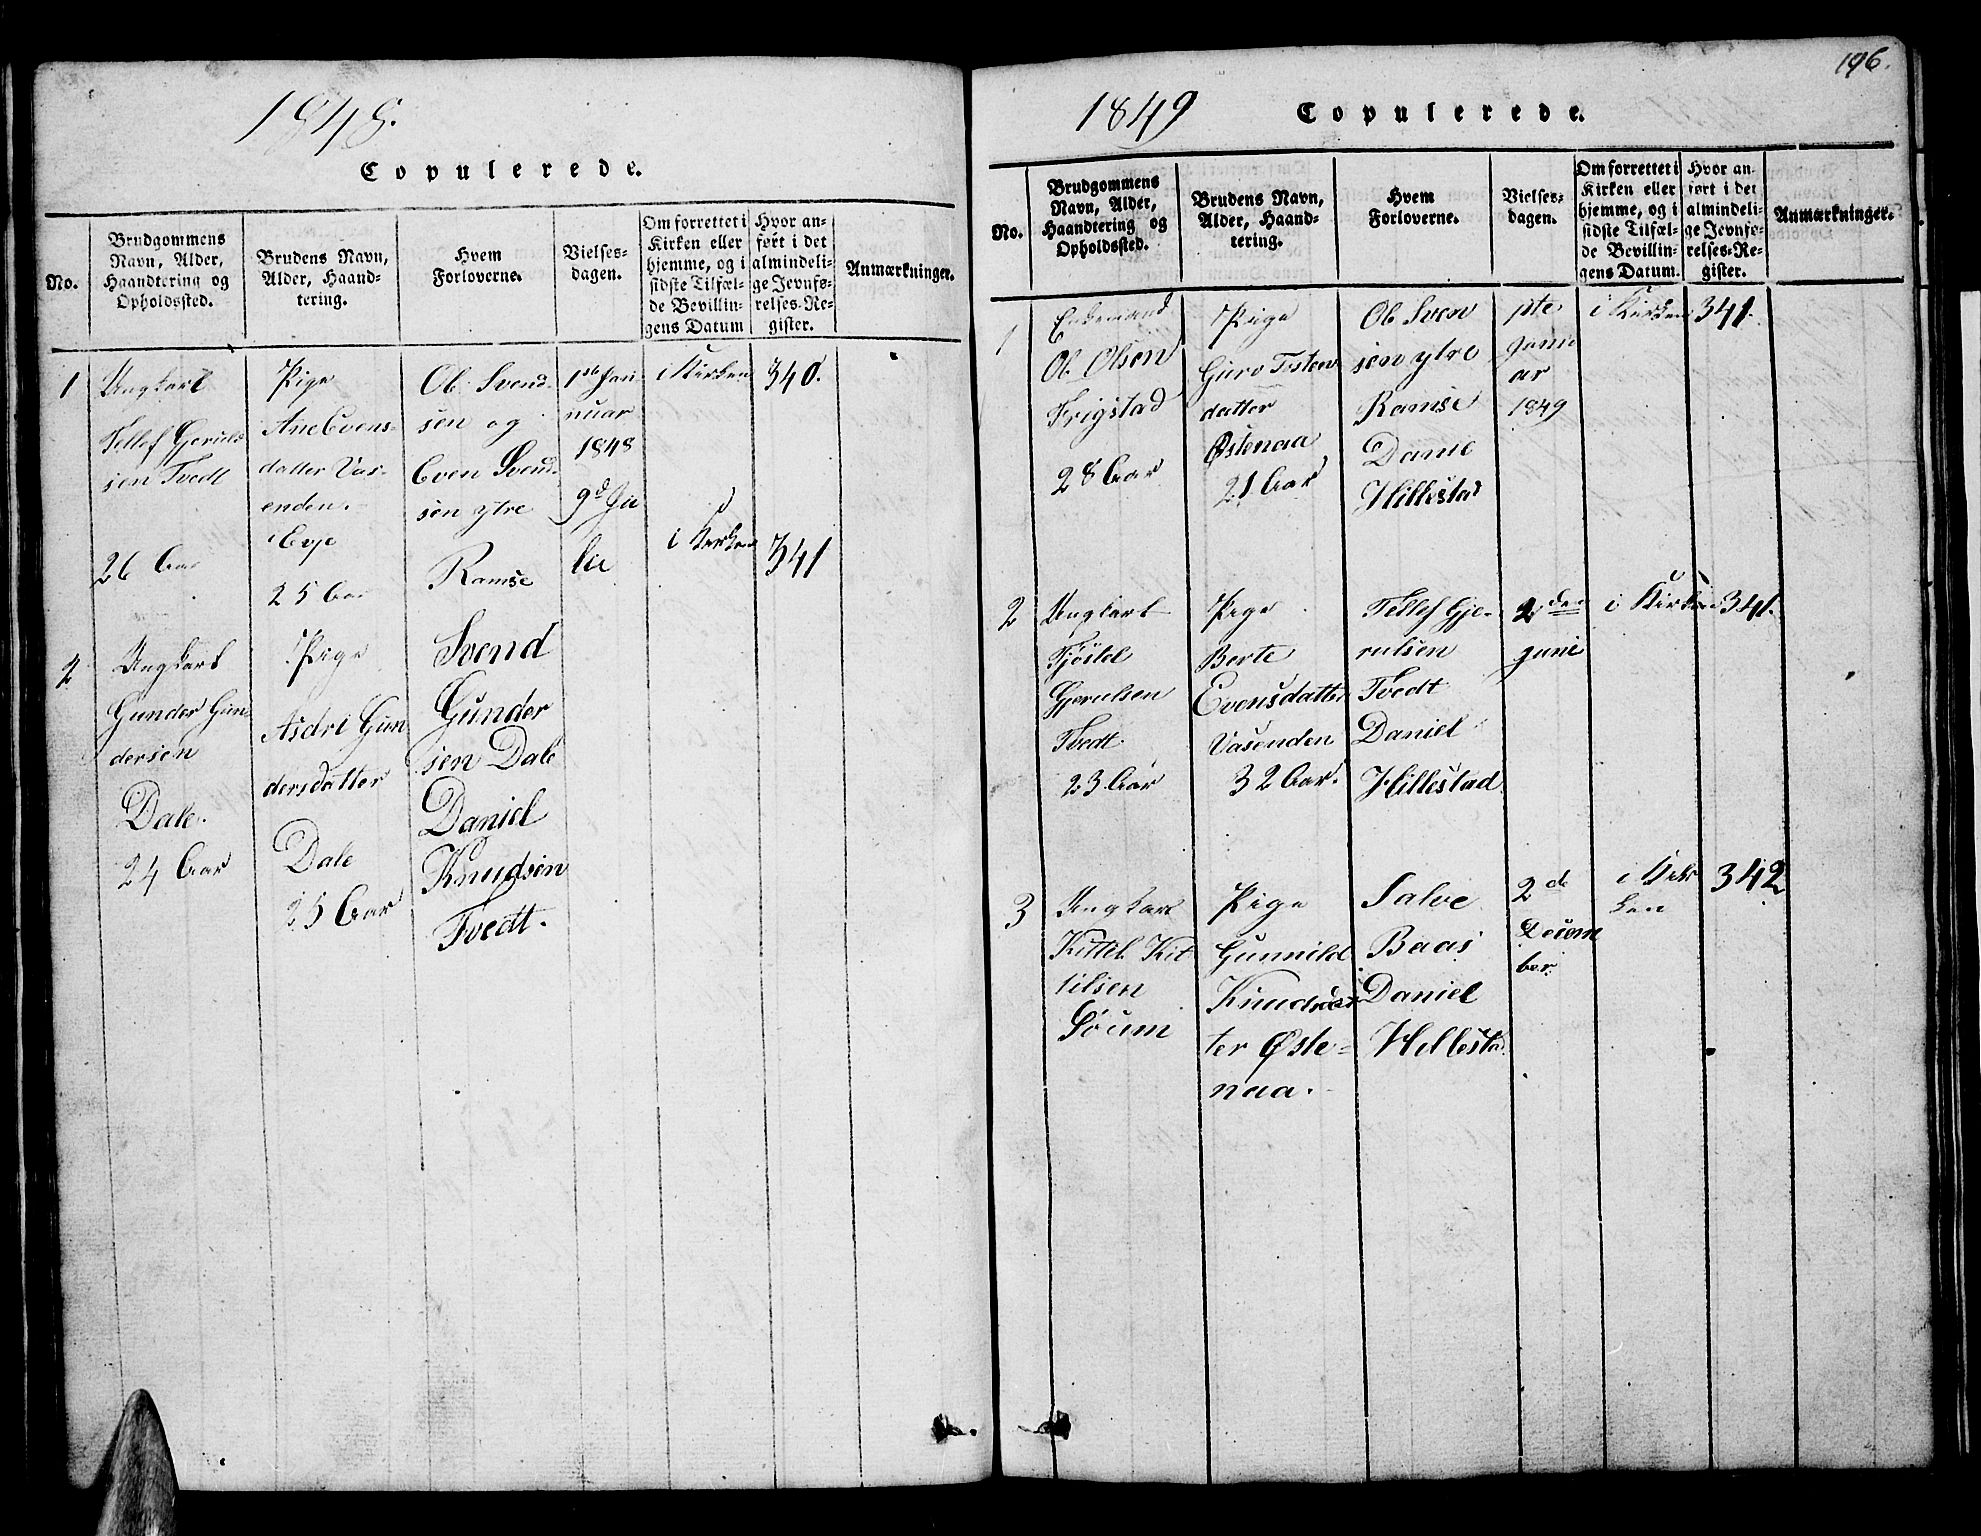 1848.
Copulerede.
No.
Brudgommens
Navn, Alder,
Haandtering og
Opholdssted.
Brudens Navn,
Alder, Haand-
tering.
Hvem
Forloverne.
Vielses-
dagen.
Om forrettet i
Kirken eller
hjemme, og i
sidste Tilfæl-
de Bevillin-
gens Datum
Hvor an-
ført i det
almindeli-
ge Jevnfø-
relses-Re-
gister.
Anmærkninger.
1
Ungkarl
Tellef Gjeruls
sen Tvedt
26 Aar
Pige
Ane Evens-
datter Vas-
enden.
Evje
25 Aar
Ol. Svend-
sen og
Even Svend-
sen ytre
Ramse
1st Jan-
nuar
1848
i Kirken
340.
2
Ungkarl
Gunder Gun-
dersen
Dale.
24 Aar
Pige
Asdri Gun
dersdatter
Dale
25 Aar
Svend
Gunder
sen Dale
Daniel
Knudsen
Tvedt.
9d Ju
lii
i Kirken
341
196.
1849
Copulerede.
No.
Brudgommens
Navn, Alder,
Haandtering og
Opholdssted.
Brudens Navn,
Alder, Haand-
tering.
Hvem
Forloverne.
Vielses-
dagen.
Om forrettet i
Kirken eller
hjemme, og i
sidste Tilfæl-
de Bevillin-
gens Datum.
Hvor an-
ført i det
almindeli-
ge Jevnfø-
relses-Re-
gister.
Anmærkninger.
1
Enkemand
Ol. Olsen
Frigstad
28 Aar
Pige
Guro Tisten
datter
Østenaa
21 Aar
Ol Sven
sen ytre
Ramse
Daniel
Hillestad
1ste
Janu
ar
1849
i Kirken
341.
2
Ungkarl
Tjöstel
Gjerulsen
Tvedt
23 Aar
Pige
Berte
Evensdatter
Vasenden
32 Aar.
Tellef Gje-
rulsen
Tvedt
Daniel
Hillestad
2den
Juni
i Kirken
341.
3
Ungkarl
Kittel Kit
tilsen
Pige
Gunnild
Knudsdat
ter Øste-
naa.
Salve
Baas
Daniel
Hellestad
2de
Decem
ber.
i Kir
ken
342